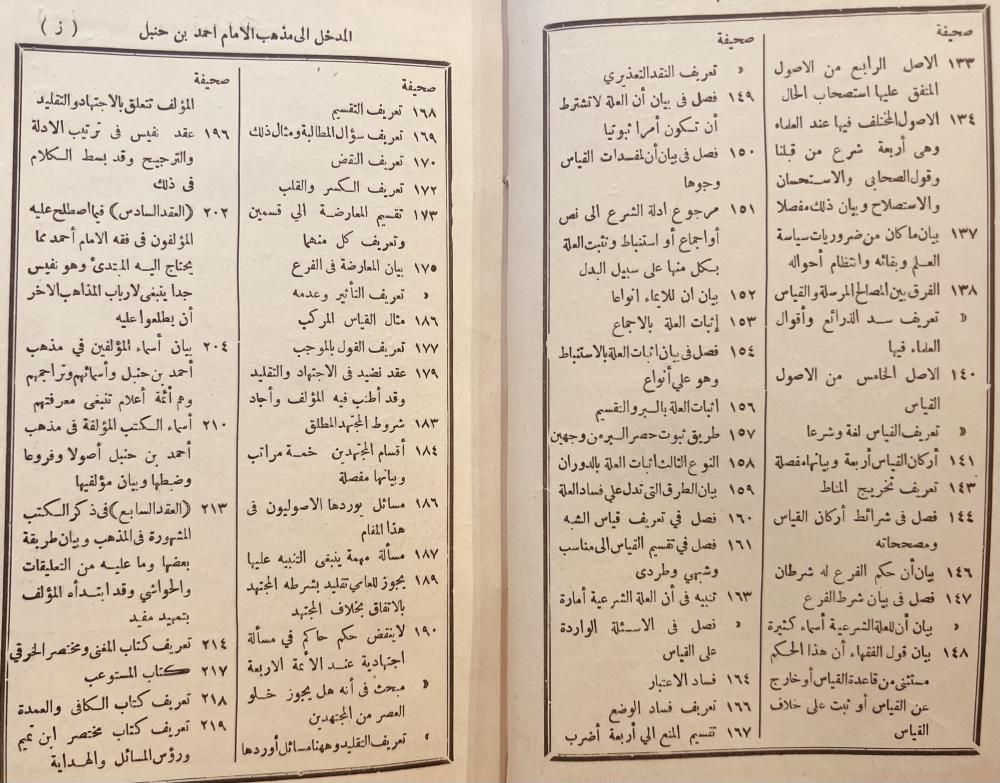 صحيفة
١٣٣ الاصل الرابع من الاصول
المتفق عليها استصحاب الحال
١٣٤ الاصول المختلف فيها عند العلماء
وهى أربعة شرع من قبلنا
وقول الصحابي والاستحسان
والاستصلاح وبيان ذلك مفصلا
١٣٧ بيان ما كان من ضروريات سياسة
العلم وبقائه وانتظام أحواله
١٣٨ الفرق بين المصالح المرسلة والقياس
» تعريف سد الذرائع وأقوال
العلماء فيها
١٤٠ الاصل الخامس من الاصول
القياس
» تعريف القياس لغة وشرعا
١٤١ أركان القياس أربعة وبيانها مفصلة
١٤٣ تعريف تخريج المناط
١٤٤ فصل فى شرائط أركان القياس
ومصححاته
١٤٦ بيان أن حكم الفرع له شرطان
١٤٧ فصل فى بيان شرط الفرع
» بيان أن للعلة الشرعية أسماء كثيرة
١٤٨ بيان قول الفقهاء أن هذا الحكم
مستثنى من قاعدة القياس أو خارج
عن القياس أو ثبت على خلاف
القياس
صحيفة
» تعريف النقد التعذيري
١٤٩ فصل فى بيان أن العلة لا تشترط
أن تكون أمرا ثبوتيا
١٥٠ فصل فى بيان أن لمفسدات القياس
وجوها
١٥١ مرجوع ادلة الشرع الى نص
أو اجماع أو استنباط وتثبت العلة
بكل منها على سبيل البدل
١٥٢ بيان ان للايماء انواعا
١٥٣ إثبات العلة بالاجماع
١٥٤ فصل فى بيان اثبات العلة بالاستنباط
وهو على أنواع
١٥٦ اثبات العلة بالسبر والتقسيم
١٥٧ طريق ثبوت حصر السبر من وجهين
١٥٨ النوع الثالث اثبات العلة بالدوران
١٥٩ بيان الطرق التى تدل على فساد العلة
١٦٠ فصل في تعريف قياس الشبه
١٦١ فصل في تقسيم القياس الى مناسب
وشبهي وطردى
١٦٣ تنبيه فى أن العلة الشرعية أمارة
» فصل فى الاسئلة الواردة
على القياس
١٦٤ فساد الاعتبار
١٦٦ تعريف فساد الوضع
١٦٧ تقسيم المنع الي أربعة أضرب
المدخل الى مذهب الامام احمد بن حنبل ( ز )
صحيفة
١٦٨ تعريف التقسيم
١٦٩ تعريف سؤال المطالبة ومثال ذلك
١٧٠ تعريف النقض
١٧٢ تعريف الكسر والقلب
١٧٣ تقسيم المعارضة الي قسمين
وتعريف كل منهما
١٧٥ بيان المعارضة فى الفرع
» تعريف التأثير وعدمه
١٨٦ مثال القياس المركب
١٧٧ تعريف القول بالموجب
١٧٩ عقد نضيد فى الاجتهاد والتقليد
وقد أطنب فيه المؤلف وأجاد
١٨٣ شروط المجتهد المطلق
١٨٤ أقسام المجتهدين خمسة مراتب
وبيانها مفصلة
١٨٦ مسائل يوردها الاصوليون فى
هذا المقام
١٨٧ مسألة مهمة ينبغى التنبيه عليها
١٨٩ يجوز للعامي تقليد بشرطه المجتهد
بالاتفاق بخلاف المجتهد
١٩٠ لا ينقض حكم حاكم في مسألة
اجتهادية عند الأئمة الاربعة
» مبحث فى أنه هل يجوز خلو
العصر من المجتهدين
» تعريف التقليد وههنا مسائل أوردها
صحيفة
المؤلف تتعلق بالاجتهاد والتقليد
١٩٦ عقد نفيس فى ترتيب الادلة
والترجيح وقد بسط الكلام
فى ذلك
٢٠٢ (العقد السادس) فيما اصطلح عليه
المؤلفون فى فقه الامام أحمد مما
يحتاج اليه المبتدئ وهو نفيس
جدا ينبغى لارباب المذاهب الاخر
أن يطلعوا عليه
٢٠٤ بيان أسماء المؤلفين في مذهب
أحمد بن حنبل وأسمائهم وتراجمهم
وهم أئمة أعلام تنبغى معرفتهم
٢١٠ أسماء الكتب المؤلفة فى مذهب
أحمد بن حنبل أصولا وفروعا
وضبطها وبيان مؤلفيها
٢١٣ (العقد السابع) فى ذكر الكتب
المشهورة فى المذهب وبيان طريقة
بعضها وما عليه من التعليقات
والحواشي وقد ابتدأه المؤلف
بتمهيد مفيد
٢١٤ تعريف كتاب المغنى ومختصر الخرقي
٢١٧ كتاب المستوعب
٢١٨ تعريف كتاب الكافى والعمدة
٢١٩ تعريف كتاب مختصر ابن تميم
ورؤس المسائل والهداية